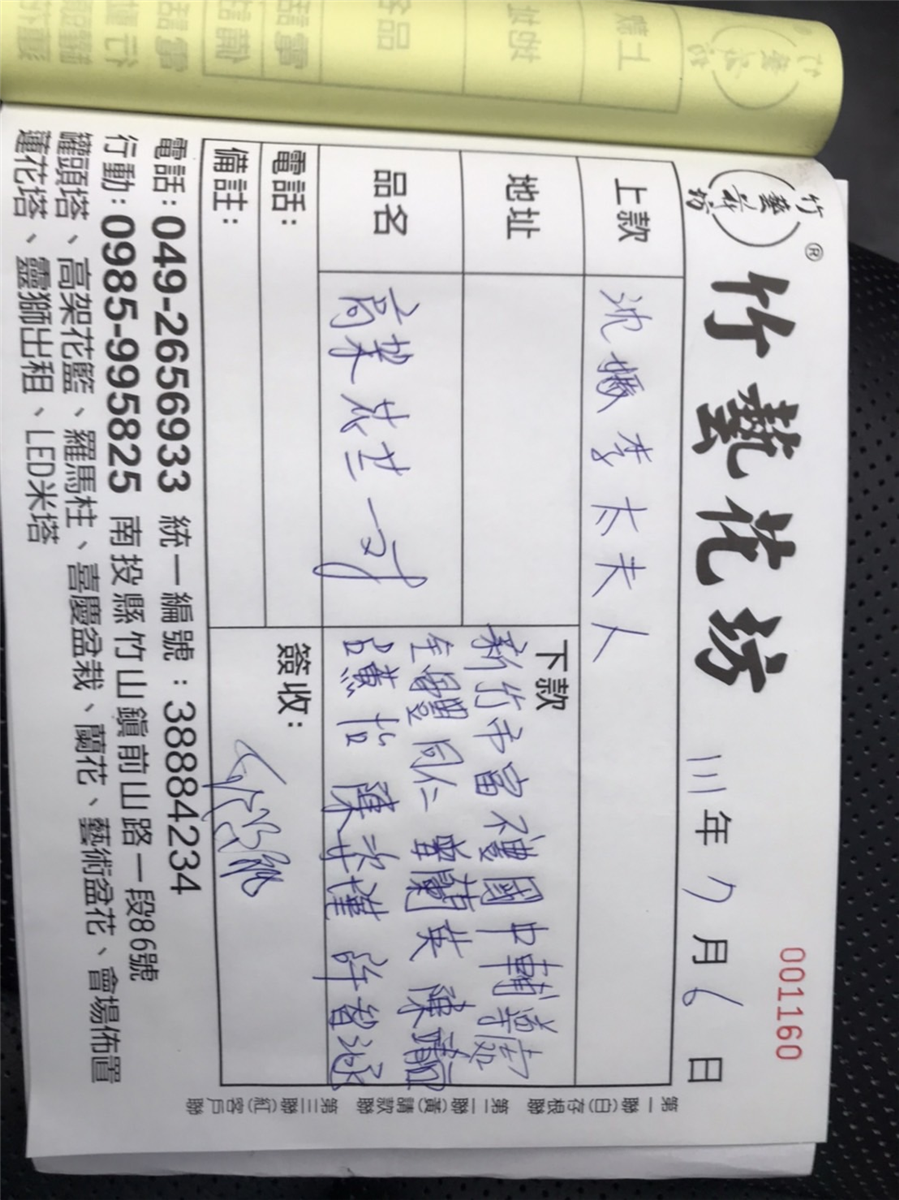 竹藝花坊®
竹藝花坊
111年7月6日
001160
上款
沈 李太夫人
地址
品名
高架花籃一對
下款
新竹市富禮國中輔導處
全體同仁 曾蘭英 陳
黃怡 陳 許智泳
電話：
備註：
簽收：
電話：049-2656933 統一編號：38884234
行動：0985-995825 南投縣竹山鎮前山路一段86號
罐頭塔、高架花籃、羅馬柱、喜慶盆栽、蘭花、藝術盆花、會場佈置
蓮花塔、靈獅出租、LED米塔
第一聯(白)存根聯 第二聯(黃)請款聯 第三聯(紅)客戶聯